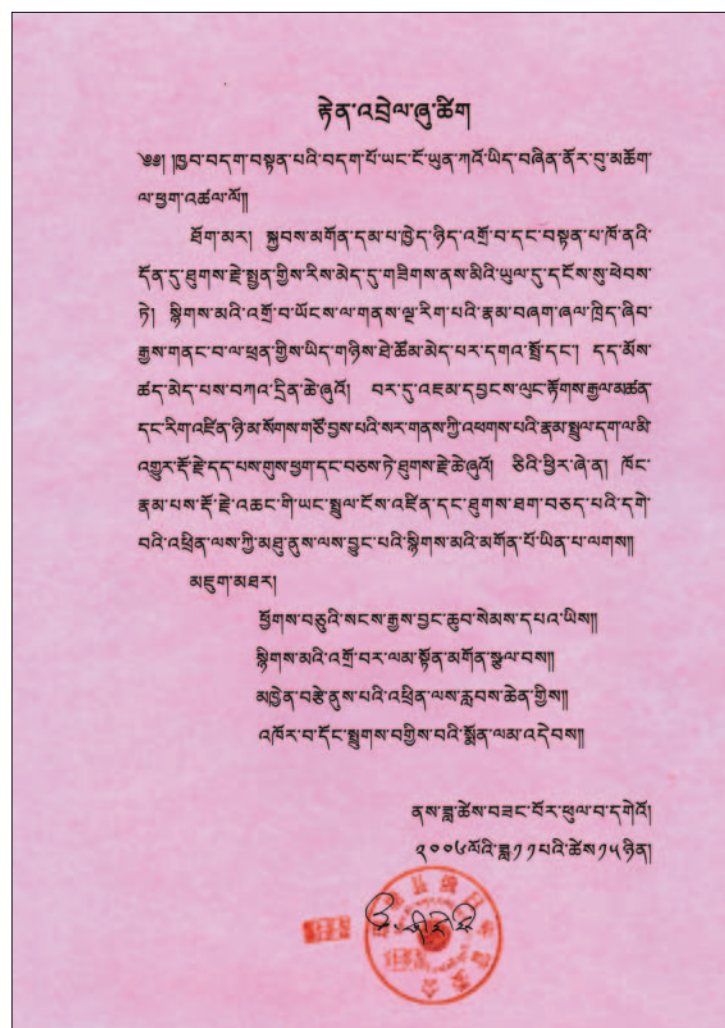 རྟེན་འབྲེལ་ཞུ་ཚིག
༄༅། །ཁྱབ་བདག་བསྟན་པའི་བདག་པོ་ཡང་ངོ་ཡུན་ཀའོ་ཡིད་བཞིན་ནོར་བུ་མཆོག་
ལ་ཕྱག་འཚལ་ལོ།།
ཐོག་མར། སྐྱབས་མགོན་དམ་པ་ཁྱེད་ཉིད་འགྲོ་བ་དང་བསྟན་པ་ཁོ་ནའི་
དོན་དུ་ཐུགས་རྗེ་སྤྱན་གྱིས་རིས་མེད་དུ་གཟིགས་ནས་མིའི་ཡུལ་དུ་དངོས་སུ་ཕེབས་
ཏེ། སྙིགས་མའི་འགྲོ་བ་ཡོངས་ལ་གནས་ལྔ་རིག་པའི་རྣམ་བཞག་ཞལ་ཁྲིད་ཞིབ་
རྒྱས་གནང་བ་ལ་ཕྲན་གྱིས་ཡིད་གཉིས་ཐེ་ཚོམ་མེད་པར་དགའ་སྤྲོ་དང་། དད་མོས་
ཚད་མེད་པས་བཀའ་དྲིན་ཆེ་ཞུའོ། བར་དུ་འཇམ་དབྱངས་ལུང་རྟོགས་རྒྱལ་མཚན་
དང་རིག་འཛིན་ཉི་མ་སོགས་གཙོ་བྱས་པའི་སར་གནས་ཀྱི་འཕགས་པའི་རྣམ་སྤྲུལ་དག་ལ་མི་
འགྱུར་རྡོ་རྗེ་དད་པས་གུས་ཕྱག་དང་བཅས་ཏེ་ཐུགས་རྗེ་ཆེ་ཞུའོ། ཅིའི་ཕྱིར་ཞེ་ན། ཁོང་
རྣམ་པས་རྡོ་རྗེ་འཆང་གི་ཡང་སྤྲུལ་ངོས་འཛིན་དང་ཐུགས་ཐག་བཅད་པའི་དགེ་
བའི་འཕྲིན་ལས་ཀྱི་མཐུ་ནུས་ལས་བྱུང་པའི་སྙིགས་མའི་མགོན་པོ་ཡིན་པ་ལགས།།
མཇུག་མཐར།
ཕྱོགས་བཅུའི་སངས་རྒྱས་བྱང་ཆུབ་སེམས་དཔའ་ཡིས།།
སྙིགས་མའི་འགྲོ་བར་ལམ་སྟོན་མགོན་སྩལ་བས།།
མཁྱེན་བརྩེ་ནུས་པའི་འཕྲིན་ལས་རླབས་ཆེན་གྱིས།།
འཁོར་བ་དོང་སྤྲུགས་བགྱིས་བའི་སྨོན་ལམ་འདེབས།།
ནས་ཟླ་ཚེས་བཟང་པོར་ཕུལ་བ་དགེའོ།
༢༠༠༦ལོའི་ཟླ༡༡པའི་ཚེས༡༥ཉིན།